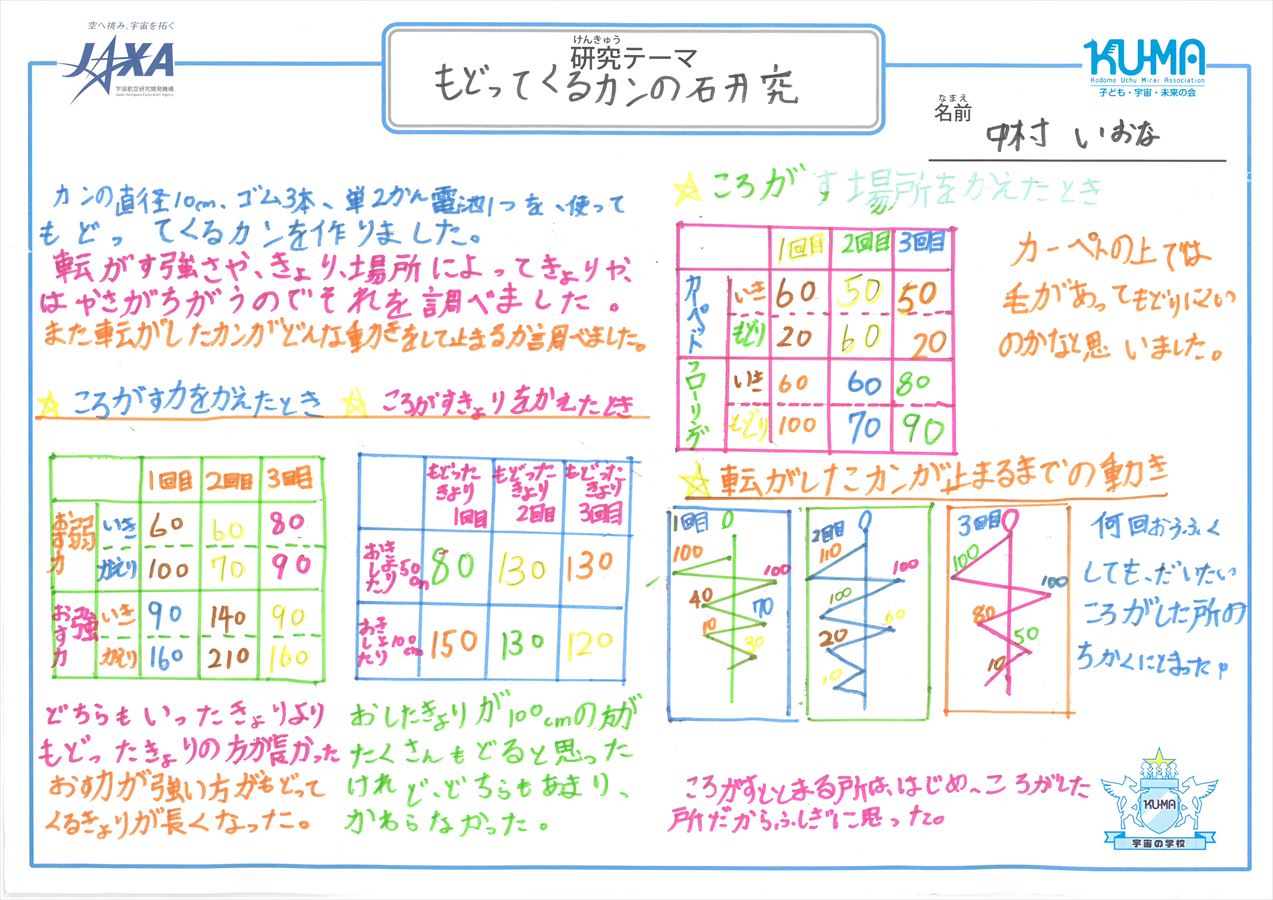 空へ挑み、宇宙を拓く
JAXA
宇宙航空研究開発機構
Japan Aerospace Exploration Agency
けんきゅう
研究テーマ
もどってくるカンの研究
KU-MA
Kodomo Uchu Mirai Association
子ども・宇宙・未来の会
なまえ
名前
中村 いおな
カンの直径10cm、ゴム3本、単2かん電池1つを、使って
もどってくるカンを作りました。
転がす強さや、きょり、場所によってきょりや、
はやさがちがうのでそれを調べました。
また転がしたカンがどんな動きをして止まるか調べました。
☆ころがす力をかえたとき
1回目 2回目 3回目
おす力弱 いき 60 60 80
かえり 100 70 90
おす力強 いき 90 140 90
かえり 160 210 160
どちらもいったきょりより
もどったきょりの方が長かった
おす力が強い方がもどって
くるきょりが長くなった。
☆ころがすきょりをかえたとき
もどったきょり1回目 もどったきょり2回目 もどったきょり3回目
おしたきょり50cm 80 130 130
おしたきょり100cm 150 130 120
おしたきょりが100cmの方が
たくさんもどると思った
けれど、どちらもあまり、
かわらなかった。
☆ころがす場所をかえたとき
1回目 2回目 3回目
カーペット いき 60 50 50
もどり 20 60 20
フローリング いき 60 60 80
もどり 100 70 90
カーペットの上では
毛があってもどりにくい
のかなと思いました。
☆転がしたカンが止まるまでの動き
1回目 0
100
100
40
70
10
30
2回目 0
110
100
100
60
20
10
3回目 0
100
100
80
50
10
何回おうふく
しても、だいたい
ころがした所の
ちかくにとまった。
ころがすととまる所は、はじめ、ころがした
所だからふしぎに思った。
KU-MA
宇宙の学校